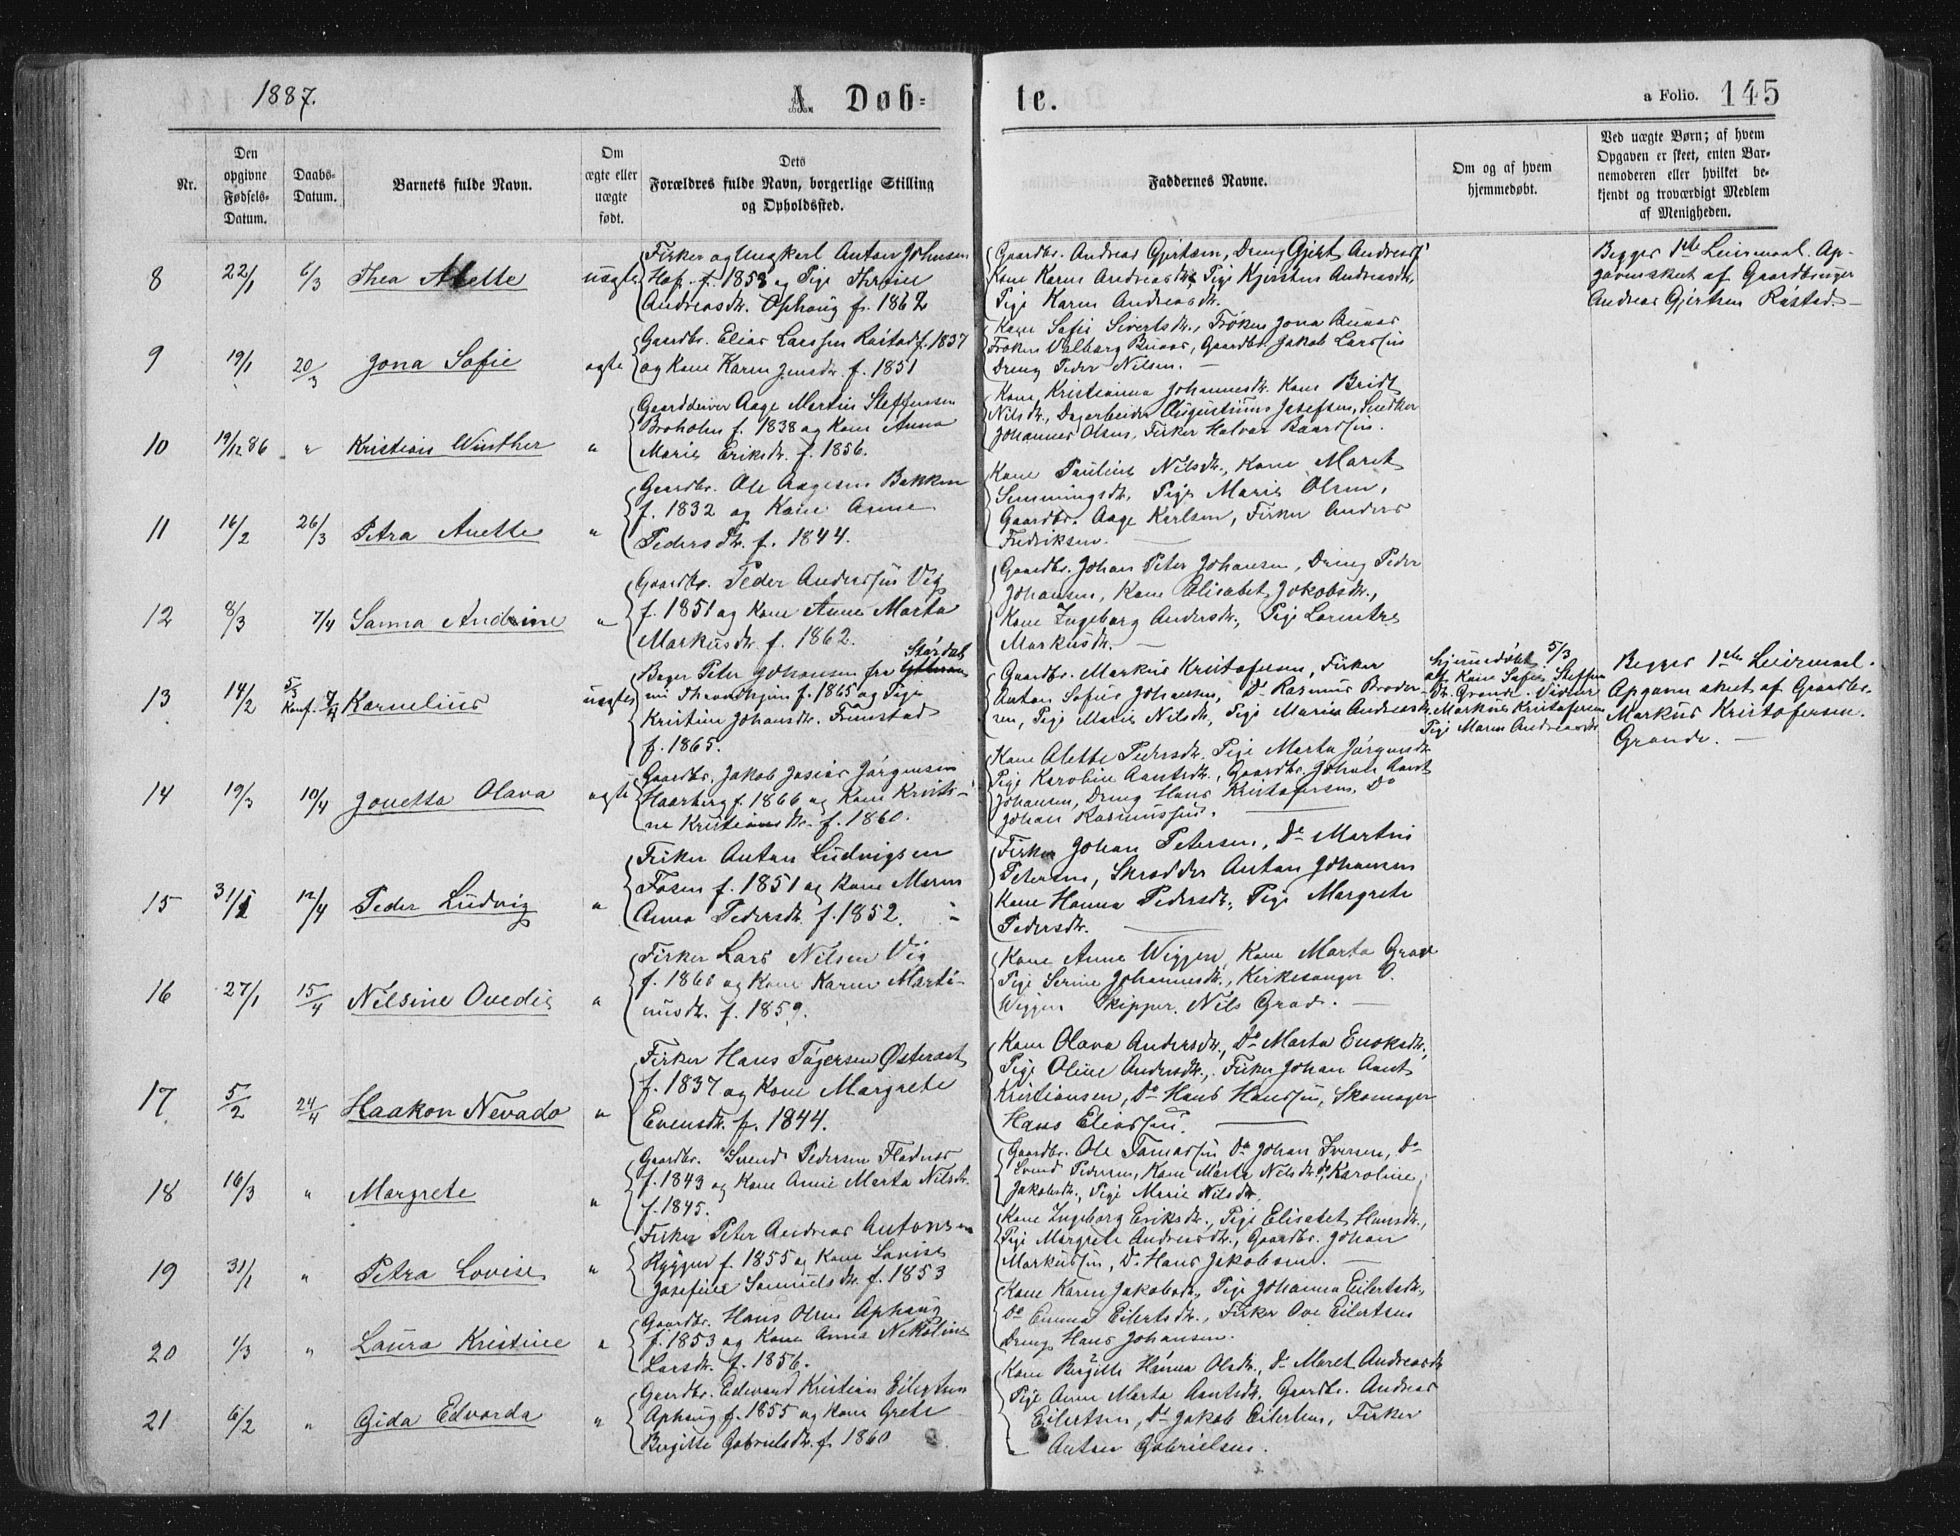 1887.
A. Døb-
te.
a Folio. 145
Nr.
Den opgivne Fødsels-Datum.
Daabs-Datum.
Barnets fulde Navn.
Om ægte eller uægte født.
Dets Forældres fulde Navn, borgerlige Stilling og Opholdssted.
Faddernes Navne.
Om og af hvem hjemmedøbt.
Ved uægte Børn; af hvem Opgaven er skeet, enten Barnemoderen eller hvilket bekjendt og troværdigt Medlem af Menigheden.
8 22/1 6/3 Thea Anette uægte
Fisker og Ungkarl Anton Johnsen
Hop. f. 1853 og Pige Thrine
Andreasdtr. Ophaug f. 1862
Gaardbr. Andreas Gjertsen, Dreng Gjert Andreas
Kone Karen Andreasdtr. Pige Kjersten Andreasdtr.
Pige Karen Andreasdtr.
Begges 1ste Leiermaal. Op-
gaven skeet af Gaardbruger
Andreas Gjertsen Røstad. —
9 19/1 20/3 Jona Sofie ægte
Gaardbr. Elias Larssen Røstad f. 1837
og Kone Karen Jensdtr. f. 1851
Kone Sofie Sivertsdtr., Frøken Jona Buaas
Frøken Valborg Buaas, Gaardbr. Jakob Larssen
Dreng Peder Nilsen. —
10 19/12 86 " Kristian Winther "
Gaarddriver Aage Martin Steffensen
Broholm f. 1838 og Kone Anna
Marie Eriksdtr. f. 1856.
Kone Kristianna Johannesdtr. Kone Bridt
Nilsdtr., Dagarbeider Augustinus Josefsen, Snedker
Johannes Olsen, Fisker Halvor Baardsen.
11 16/2 26/3 Petra Anette "
Gaardbr. Ole Aagesen Bakken
f. 1832 og Kone Anne
Pedersdtr. f. 1844.
Kone Pauline Nilsdtr., Kone Maret
Simmingsdtr. Pige Marie Olsen,
Gaardbr. Aage Karlsen, Fisker Anders
Fredriksen. —
12 8/3 7/4 Sanna Andrine "
Gaardbr. Peder Anderssen Vig
f. 1851 og Kone Anne Marta
Markusdtr. f. 1862.
Gaardbr. Johan Peter Johansen, Dreng Peder
Johansen, Kone Elisabet Jakobsdtr.,
Kone Ingeborg Andersdtr., Pige Laurentze
Markusdtr. —
13 14/2 5/3 Konf. 7/4 Kornelius uægte
Størdal
Bager Peter Johansen fra
nu Throndhjem f. 1865 og Pige
Kristine Johansdtr. Fremstad
f. 1865.
Gaardbr. Markus Kristofersen, Fisker
Anton Sofus Johansen, Do Rasmus Broder-
sen, Pige Maren Nilsdtr., Pige Maren Andreasdtr.
hjemmedøbt 5/3
af Kone Sofie Steffens-
dtr. Grande. Vidner
Markus Kristofersen
Pige Maren Andreasdtr.
Begges 1ste Leiermaal.
Opgaven skeet af Gaardbr.
Markus Kristofersen.
Grande. —
14 19/3 10/4 Jonetta Olava ægte
Gaardbr. Jakob Josias Jørgensen
Haarberg f. 1866 og Kone Kristi-
ne Kristiansdtr. f. 1860.
Kone Alette Pedersdtr. Pige Marta Jørgensdtr.
Pige Karoline Aantsdtr., Gaardbr. Johan Aant
Johansen, Dreng Hans Kristofersen, Do
Johan Rasmussen.
15 31/1 12/4 Peder Ludvig "
Fisker Anton Ludvigsen
Fosen f. 1851 og Kone Maren
Anna Pedersdtr. f. 1852.
Fisker Johan Petersen, Do Martin
Petersen, Skrædder Anton Johansen
Kone Hanna Pedersdtr. Pige Margrete
Pedersdtr. —
16 27/1 15/4 Nilsine Ovedie "
Fisker Lars Nilsen Vig
f. 1860 og Kone Karen Marti-
nusdtr. f. 1859.
Kone Anne Wiggen, Kone Marta Grad
Pige Serine Johannesdtr., Kirkesanger O.
Wiggen Skipper. Nils Grad. —
17 5/2 24/4 Haakon Nevado "
Fisker Hans Tøgersen Østeraat
f. 1837 og Kone Margrete
Evensdtr. f. 1844.
Kone Olava Andersdtr., Do Marta Enoksdtr.,
Pige Oline Andersdtr., Fisker Johan Aant
Kristiansen, Do Hans Hanssen, Skomager
Hans Eliassen. —
18 16/3 " Margrete "
Gaardbr. Svend Pedersen Fladnes
f. 1843 og Kone Anne Marta Nilsdtr.
f. 1845.
Gaardbr. Ole Tomassen Do Johan Iversen, Do
Svend Pedersen, Kone Marta Nilsdtr., Do Karoline
Jakobsdtr., Pige Marie Nilsdtr.
19 31/1 " Petra Lovise "
Fisker Peter Andreas Antonsen
Ryggen f. 1855 og Kone Lovise
Josefine Samuelsdtr. f. 1853
Kone Ingeborg Eriksdtr., Pige Elisabet Hansdtr.,
Pige Margrete Andreasdtr., Gaardbr. Johan
Markussen, Do Hans Jakobsen. —
20 1/3 " Laura Kristine "
Gaardbr. Hans Olsen Ophaug
f. 1853 og Kone Anna Nikoline
Larsdtr. f. 1856.
Kone Karen Jakobsdtr., Pige Johanna Eilertsdtr.,
Do Emma Eilertsdtr., Fisker Ove Eilertsen
Dreng Hans Johansen.
21 6/2 " Gida Edvarda "
Gaardbr. Edvard Kristian Eilertsen
Ophaug f. 1855 og Kone Grete
Bergitte Gabrielsdtr. f. 1860
Kone Bergitte Hanna Olsdtr., Do Maret Andreasdtr.
Pige Anne Marta Aantsdtr. Gaardbr. Andreas
Eilertsen, Do Jakob Eilertsen, Fisker
Anton Gabrielsen.